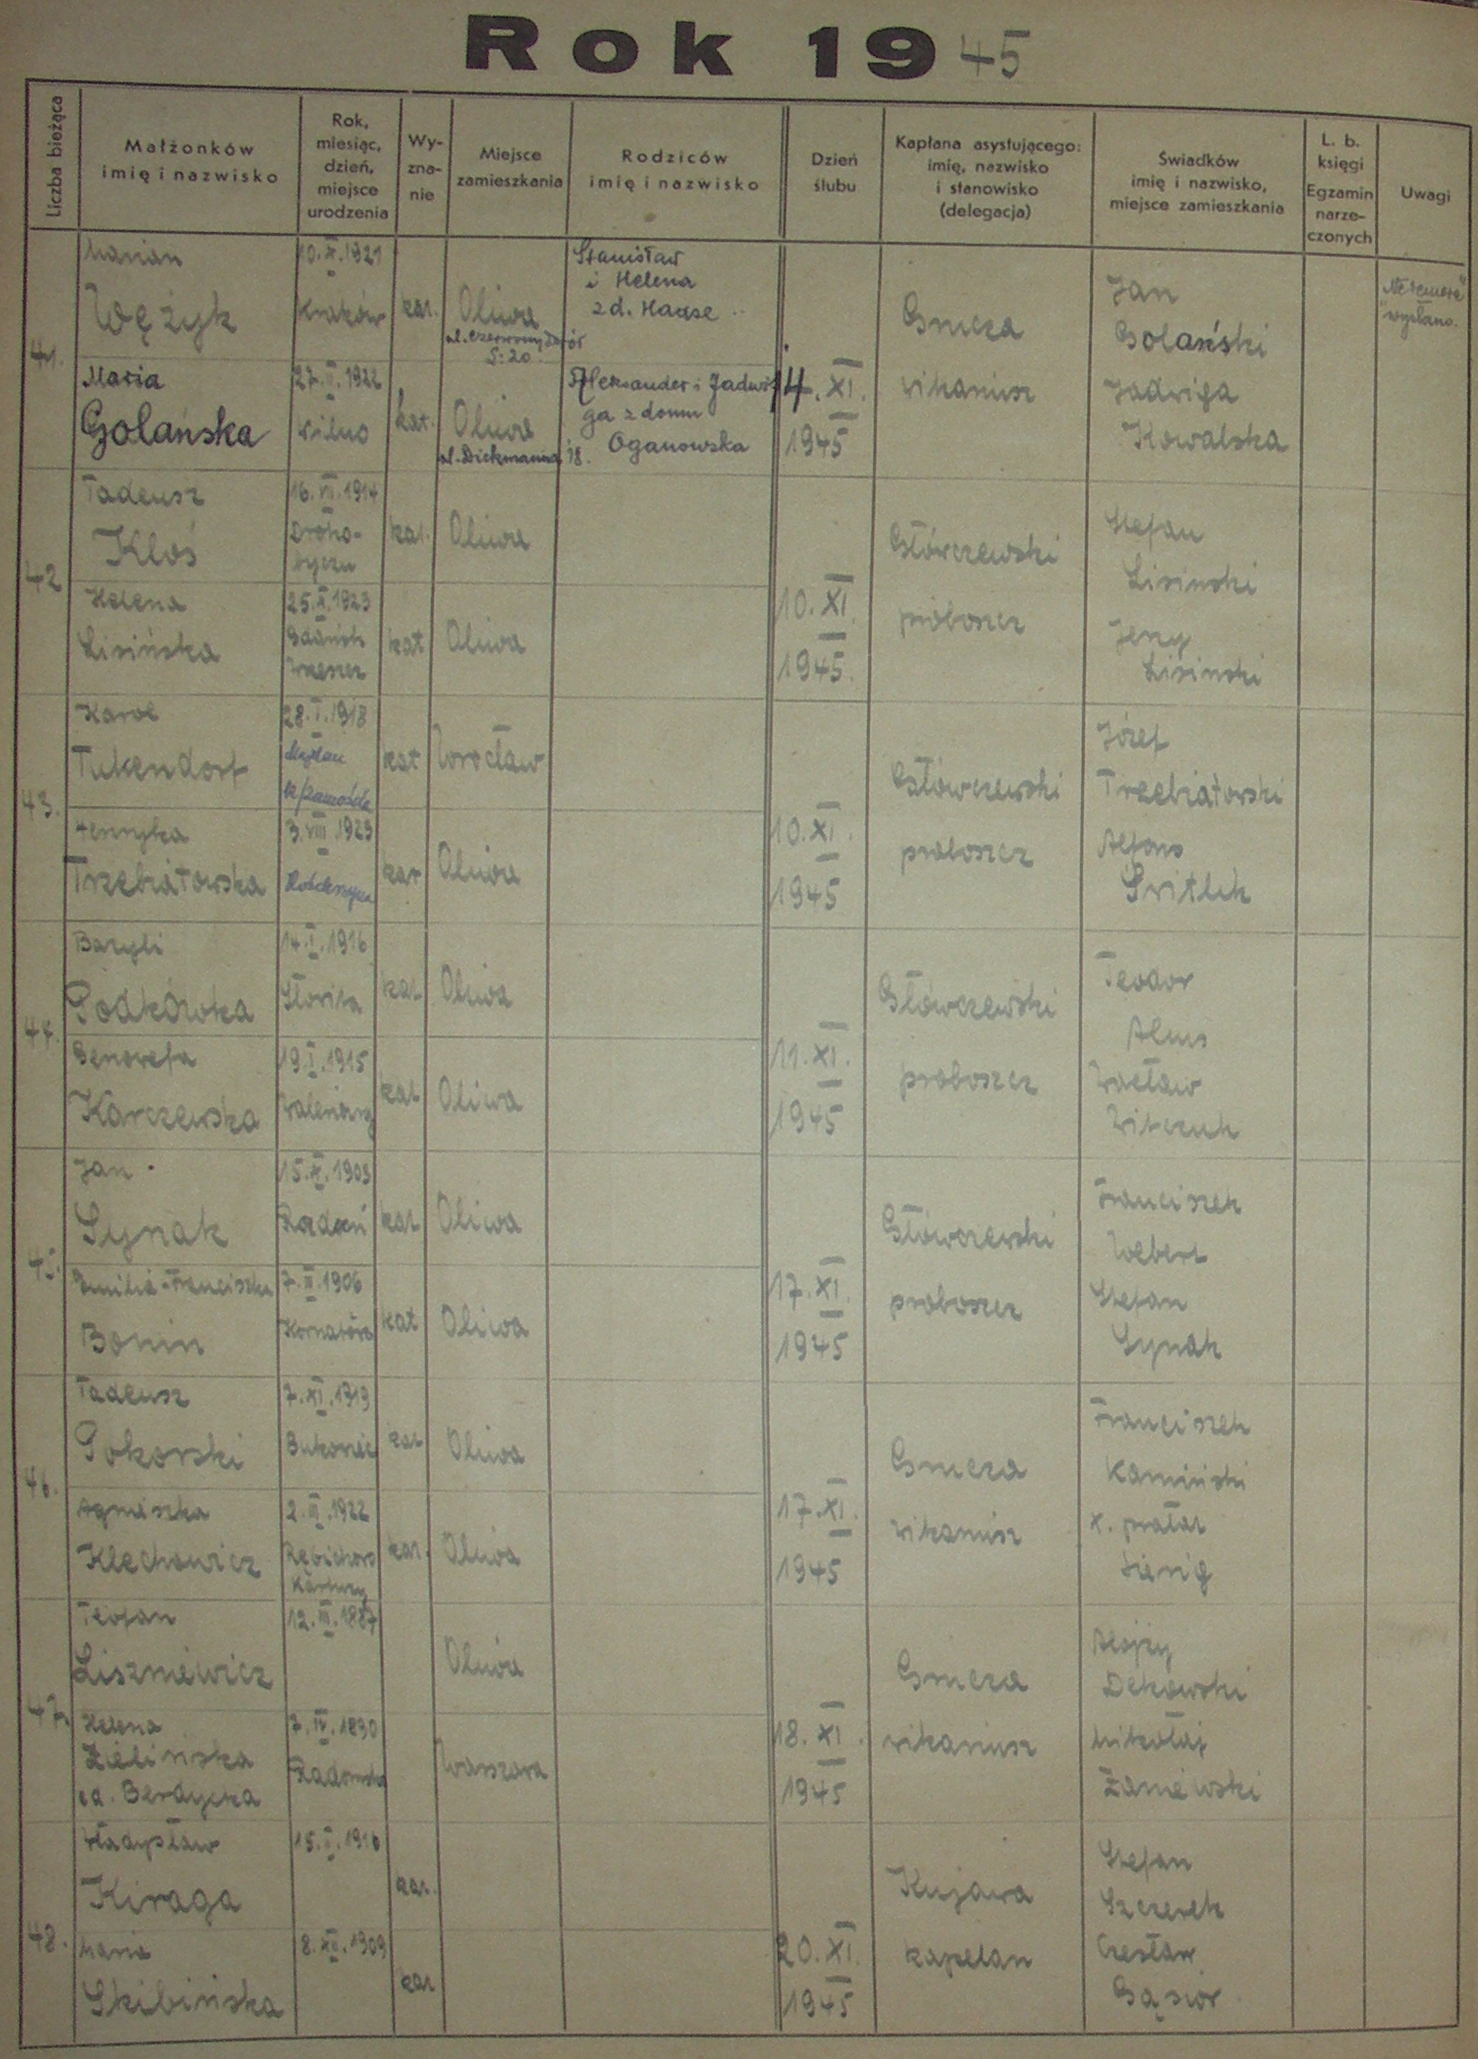 Rok 1945
Liczba bieżąca
Małżonków
imię i nazwisko
Rok,
miesiąc,
dzień,
miejsce
urodzenia
Wy-
zna-
nie
Miejsce
zamieszkania
Rodziców
imię i nazwisko
Dzień
ślubu
Kapłana asystującego:
imię, nazwisko
i stanowisko
(delegacja)
Świadków
imię i nazwisko,
miejsce zamieszkania
L. b.
księgi
Egzamin
narze-
czonych
Uwagi
41.
Marian
Wężyk
10.X.1921
Kraków
kat.
Oliwa
ul. Czerwony Dwór
20
Stanisław
i Helena
z d. Haase
Maria
Golańska
27.II.1922
Wilno
kat.
Oliwa
ul. Dickmanna 18.
Aleksander i Jadwi
ga z domu
Oganowska
14.XI.
1945
Gmeza
wikariusz
Jan
Golański
Jadwiga
Kowalska
"Ne temere"
wysłano.
42
Tadeusz
Kłoś
16.VII.1914
Droho-
byczu
kat.
Oliwa
Helena
Lisińska
25.X.1923
Gdańsk
Wrzeszcz
kat
Oliwa
10.XI.
1945.
Główczewski
proboszcz
Stefan
Lisinski
Jerzy
Lisinski
43.
Karol
Tukendorf
28.I.1918
Majdan
k/Zamościa
kat
Wrocław
Henryka
Trzebiatowska
3.VIII.1923
Kościerzyna
kat
Oliwa
10.XI.
1945
Główczewski
proboszcz
Józef
Trzebiatowski
Alfons
44.
Bazyli
Podkówka
14.I.1916
kat
Oliwa
Genowefa
Karczewska
19.I.1915
kat
Oliwa
11.XI.
1945
Główczewski
proboszcz
Teodor
Wacław
Witczuk
45.
Jan
Synak
15.X.1903
kat
Oliwa
Emilia-Franciszka
Bonin
7.II.1906
kat
Oliwa
17.XI.
1945
Główczewski
proboszcz
Franciszek
Webert
Stefan
Synak
46.
Tadeusz
Pokorski
7.XI.1919
Bukowiec
kat
Oliwa
Agnieszka
Klechowicz
2.III.1922
Kartuzy
kat.
Oliwa
17.XI.
1945
Gmeza
wikariusz
Franciszek
Kamiński
x. prałat
47.
Teofan
Liszniewicz
12.III.1887
Oliwa
Helena
Zielińska
Berdycka
7.IV.1890
Radomsko
Warszawa
18.XI.
1945
Gmeza
wikariusz
Alojzy
Dekowski
Mikołaj
Zaniewski
48.
Władysław
Kiraga
15.I.1916
kat.
Maria
Skibińska
8.XII.1909
kat
20.XI.
1945
Kujawa
kapelan
Stefan
Szczerek
Czesław
Gąsior